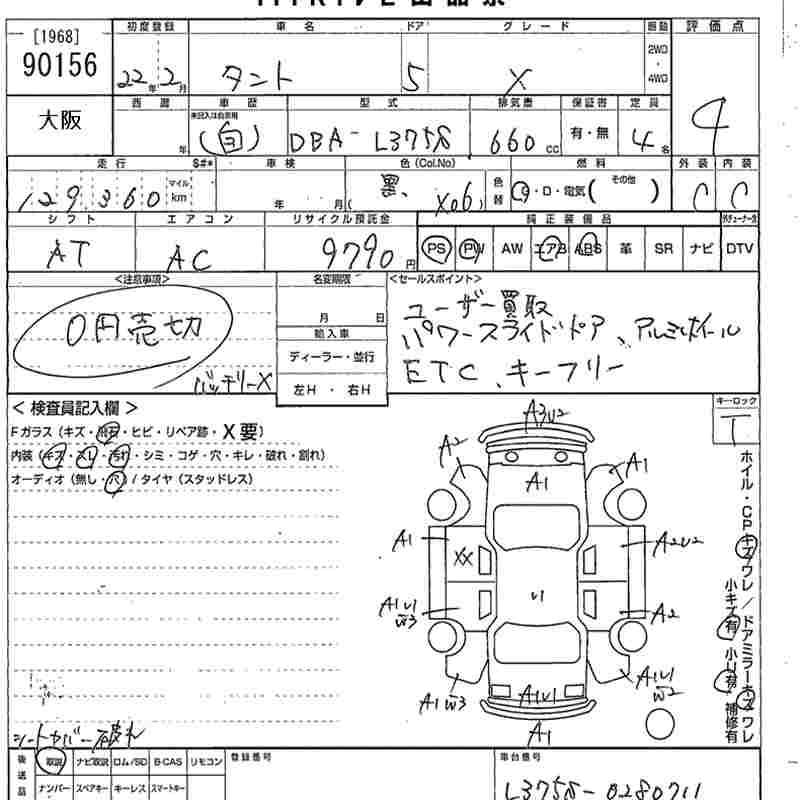 [1968]
90156
初度登録 車名 ドア グレード 駆動 評価点
22年 2月 タント 5 X 2WD・4WD 4
大阪
西暦 車歴 型式 排気量 保証書 定員
年 未記入は自家用 (自) DBA-L375S 660cc 有・無 4名
走行 S#* 車検 色(Col.No) 燃料 外装 内装
129360 マイル km 年 月 黒、( X06 ) 色替 G・D・電気( その他 ) C C
シフト エアコン リサイクル預託金 純正装備品
AT AC 9790円 PS PW AW エアB ABS 革 SR ナビ DTV
<注意事項> 名変期限 <セールスポイント>
0円売切
月 日
ユーザー買取
パワースライドドア、アルミホイール
ETC、キーフリー
輸入車
ディーラー・並行
左H・右H
バッテリーX
< 検査員記入欄 >
キーロック
T
Fガラス(キズ・飛石・ヒビ・リペア跡・X要)
内装(キズ・スレ・汚れ・シミ・コゲ・穴・キレ・破れ・割れ)
オーディオ(無し・穴)/タイヤ(スタッドレス)
A3U2
A2
A1
A1
A1
A2U2
XX
U1
A1U1
W3
A2
A1W3
A1U1
A1U1
W2
A1
ホイル・CPキズワレ/ドアミラーキズワレ
小キズ有 小U有 補修有
シートカバー破れ
後送品 取説 ナビ取説 ロム/SD B-CAS リモコン 登録番号 車台番号
ナンバー スペアキー キーレス スマートキー L375S-0280711